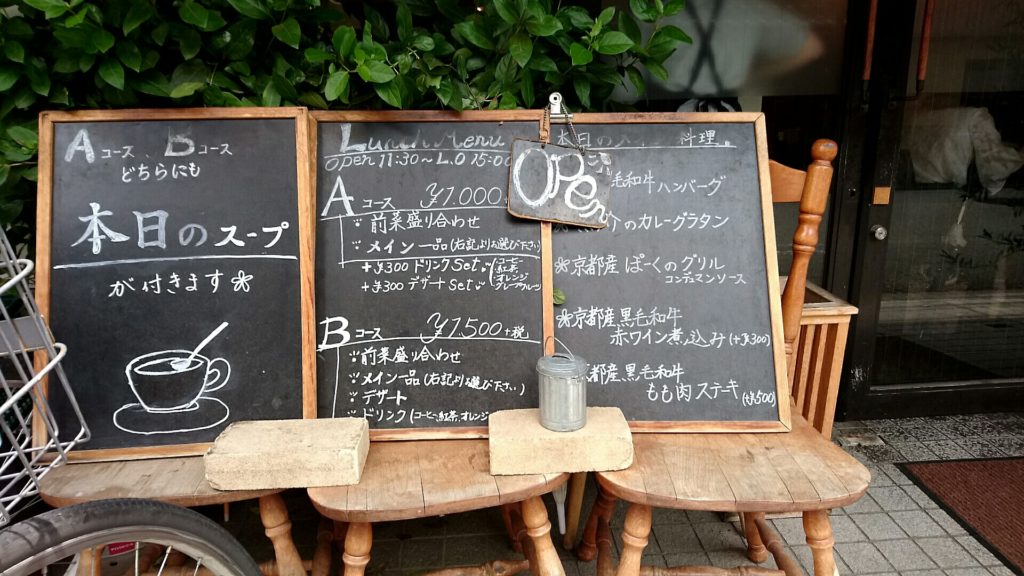 Aコース、Bコース
どちらにも
本日のスープ
が付きます
Lunch Menu
open 11:30～L.O 15:00
Aコース ¥1.000
前菜盛り合わせ
メイン一品(右記よりお選び下さい)
+¥300 ドリンクSet
(コーヒー
紅茶
オレンジ
グレープフルーツ
+¥300 デザートSet
Bコース ¥1.500+税
前菜盛り合わせ
メイン一品(右記よりお選び下さい)
デザート
ドリンク(コーヒー、紅茶、オレンジ
OPen
本日の 料理。
毛和牛ハンバーグ
のカレーグラタン
京都産 ぽーくのグリル
コンディマンソース
京都産黒毛和牛
赤ワイン煮込み(+¥300)
都産黒毛和牛
もも肉ステーキ(+¥500)